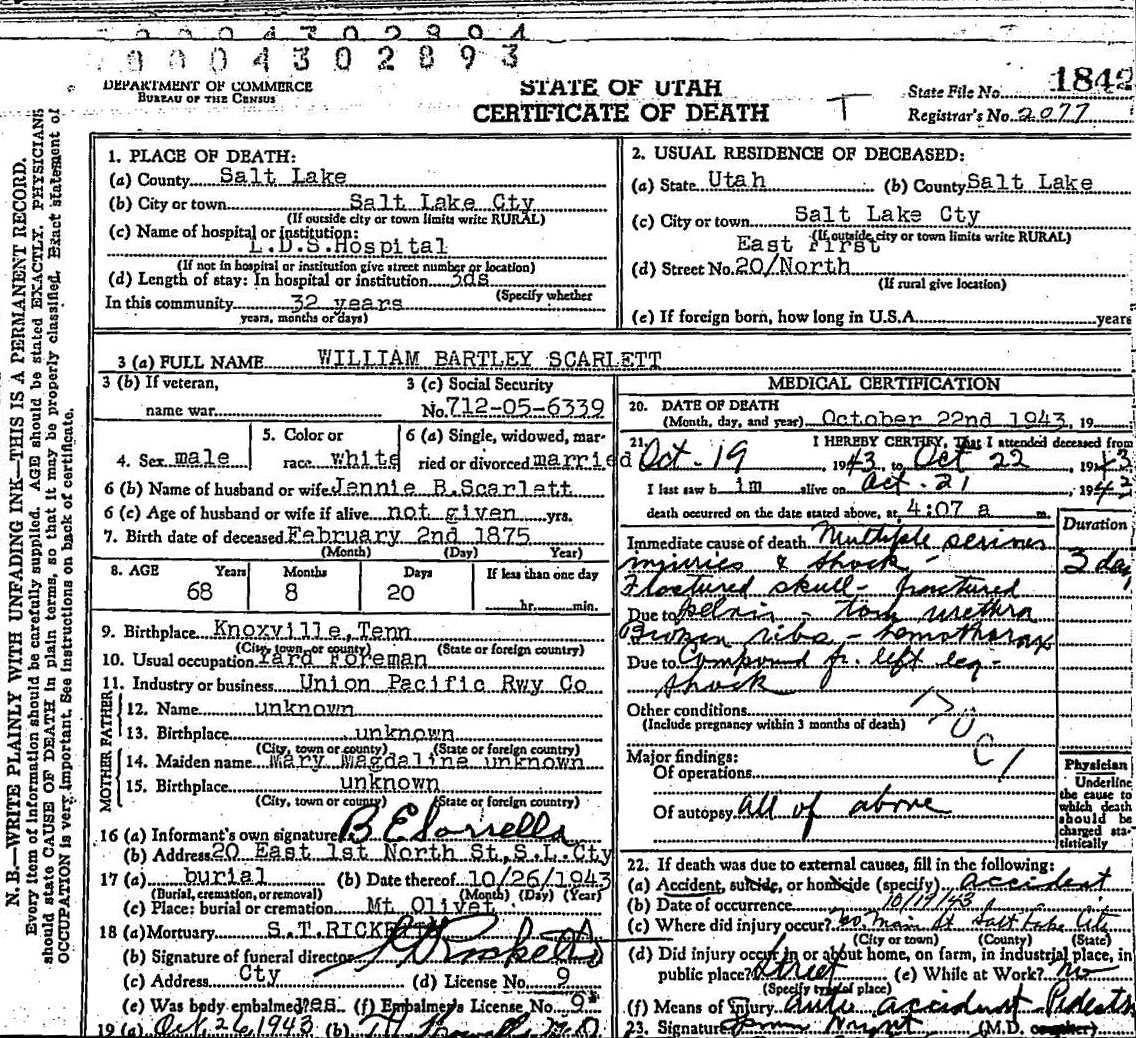 0004302893
DEPARTMENT OF COMMERCE
BUREAU OF THE CENSUS
STATE OF UTAH
CERTIFICATE OF DEATH
T
State File No. 1842
Registrar's No. 2077
N. B.—WRITE PLAINLY WITH UNFADING INK—THIS IS A PERMANENT RECORD.
Every item of information should be carefully supplied. AGE should be stated EXACTLY. PHYSICIANS
should state CAUSE OF DEATH in plain terms, so that it may be properly classified. Exact statement of
OCCUPATION is very important. See instructions on back of certificate.
1. PLACE OF DEATH:
(a) County Salt Lake
(b) City or town Salt Lake Cty
(If outside city or town limits write RURAL)
(c) Name of hospital or institution:
L.D.S.Hospital
(If not in hospital or institution give street number or location)
(d) Length of stay: In hospital or institution 3ds
(Specify whether
In this community 32 years
years, months or days)
2. USUAL RESIDENCE OF DECEASED:
(a) State Utah (b) County Salt Lake
(c) City or town Salt Lake Cty
(If outside city or town limits write RURAL)
East First
(d) Street No. 20/North
(If rural give location)
(e) If foreign born, how long in U.S.A. years
3 (a) FULL NAME WILLIAM BARTLEY SCARLETT
3 (b) If veteran,
name war
3 (c) Social Security
No. 712-05-6339
4. Sex male
5. Color or
race white
6 (a) Single, widowed, mar-
ried or divorced married
6 (b) Name of husband or wife Jennie B.Scarlett
6 (c) Age of husband or wife if alive not given yrs.
7. Birth date of deceased February 2nd 1875
(Month) (Day) Year)
8. AGE Years Months Days If less than one day
68 8 20 hr. min.
9. Birthplace Knoxville,Tenn
(City, town or county) (State or foreign country)
10. Usual occupation Yard Foreman
11. Industry or business Union Pacific Rwy Co
FATHER
12. Name unknown
13. Birthplace unknown
(City, town or county) (State or foreign country)
MOTHER
14. Maiden name Mary Magdaline unknown
15. Birthplace unknown
(City, town or county) (State or foreign country)
16 (a) Informant's own signature B E Sorrells
(b) Address 20 East 1st North St,S.L.Cty
17 (a) burial (b) Date thereof 10/26/1943
(Burial, cremation, or removal) (Month) (Day) (Year)
(c) Place: burial or cremation Mt Olivet
18 (a) Mortuary S.T.RICKETTS
(b) Signature of funeral director Ricketts
(c) Address Cty (d) License No. 9
(e) Was body embalmed yes (f) Embalmer's License No. 9
19 (a) Oct 26, 1943 (b)
MEDICAL CERTIFICATION
20. DATE OF DEATH
(Month, day, and year) October 22nd 1943, 19
21. I HEREBY CERTIFY, That I attended deceased from
Oct. 19 1943 to Oct 22 1943
I last saw h im alive on Oct. 21, 194
death occurred on the date stated above, at 4:07 a m.
Duration
Immediate cause of death Multiple serious
injuries & shock - 3 day
Fractured skull - fractured
Due to pelvis - torn urethra
Broken ribs - hemothorax
Due to Compound fr. left leg -
shock
Other conditions
(Include pregnancy within 3 months of death)
Major findings:
Of operations
Of autopsy all of above
Physician
Underline
the cause to
which death
should be
charged sta-
tistically
22. If death was due to external causes, fill in the following:
(a) Accident, suicide, or homicide (specify) accident
(b) Date of occurrence 10/19/43
(c) Where did injury occur? So. Main St Salt Lake City
(City or town) (County) (State)
(d) Did injury occur in or about home, on farm, in industrial place, in
public place? Street (e) While at Work? no
(Specify type of place)
(f) Means of Injury auto accident Pedestr
23. Signature (M.D.